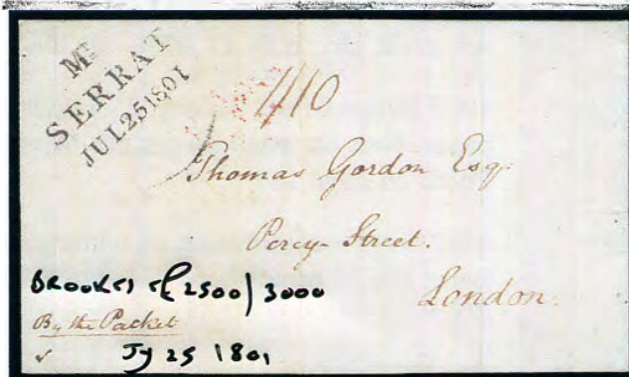 Mt
SERRAT
JUL 25 1801
4/10
Thomas Gordon Esqr
Percy-Street.
London.
BROOKES 2500/3000
By the Packet
Jy 25 1801